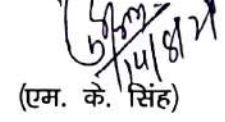 14/8/21
(एम. के. सिंह)